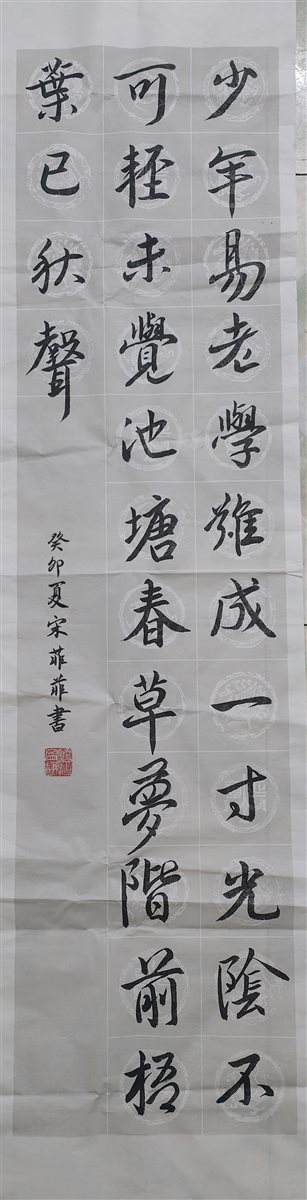 少年易老學難成一寸光陰不
可輕未覺池塘春草夢階前梧
葉已秋聲
癸卯夏宋菲菲書